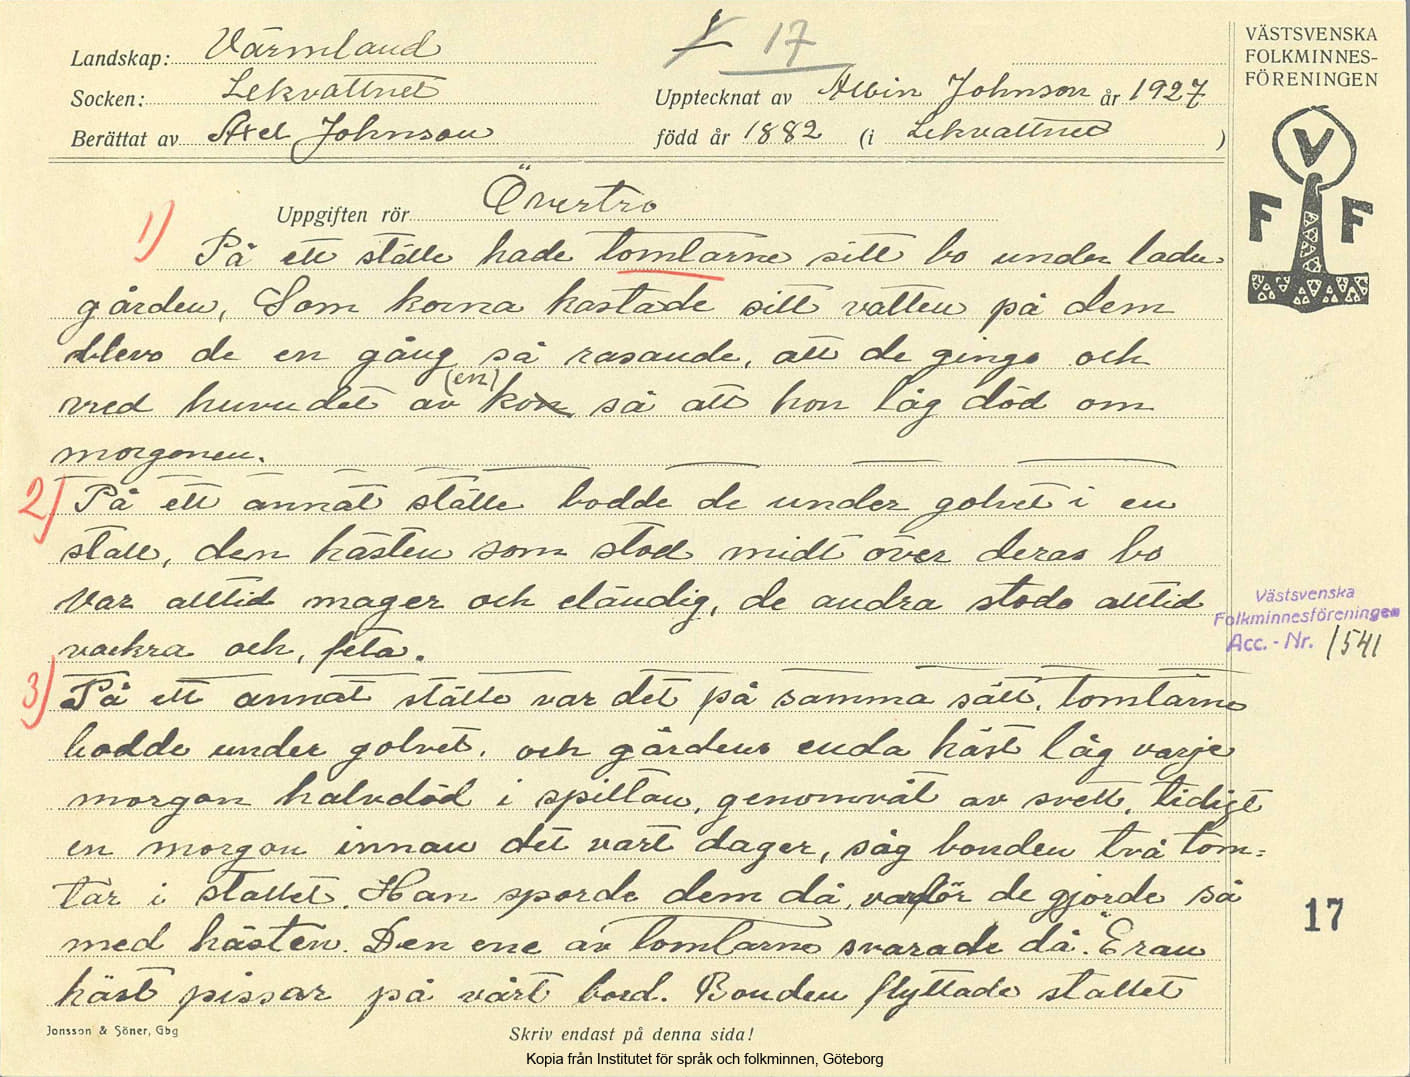 Landskap: Värmland
Socken: Lekvattnet
Berättat av Axel Johnson
17
Upptecknat av Albin Johnson år 1927
född år 1882 (i Lekvattnet )
VÄSTSVENSKA
FOLKMINNES-
FÖRENINGEN
V
F F
Uppgiften rör Övertro
1) På ett ställe hade tomtarne sitt bo under ladu-
gården, Som korna kastade sitt vatten på dem
blevo de en gång så rasande, att de gingo och
vred huvudet av (en) kon så att hon låg död om
morgonen.
2) På ett annat ställe bodde de under golvet i en
stall, den hästen som stod midt över deras bo
var alltid mager och eländig, de andra stodo alltid
vackra och, feta.
3) På ett annat ställe var det på samma sätt, tomtarne
bodde under golvet, och gårdens enda häst låg varje
morgon halvdöd i spiltan, genomvåt av svett, tidigt
en morgon innan det vart dager, såg bonden två tom=
tar i stallet. Han sporde dem då, varför de gjorde så
med hästen. Den ene av tomtarne svarade då: "Eran
häst pissar på vårt bord. Bonden flyttade stallet
Västsvenska
Folkminnesföreningen
Acc. - Nr. 1541
17
Jonsson & Söner, Gbg
Skriv endast på denna sida!
Kopia från Institutet för språk och folkminnen, Göteborg